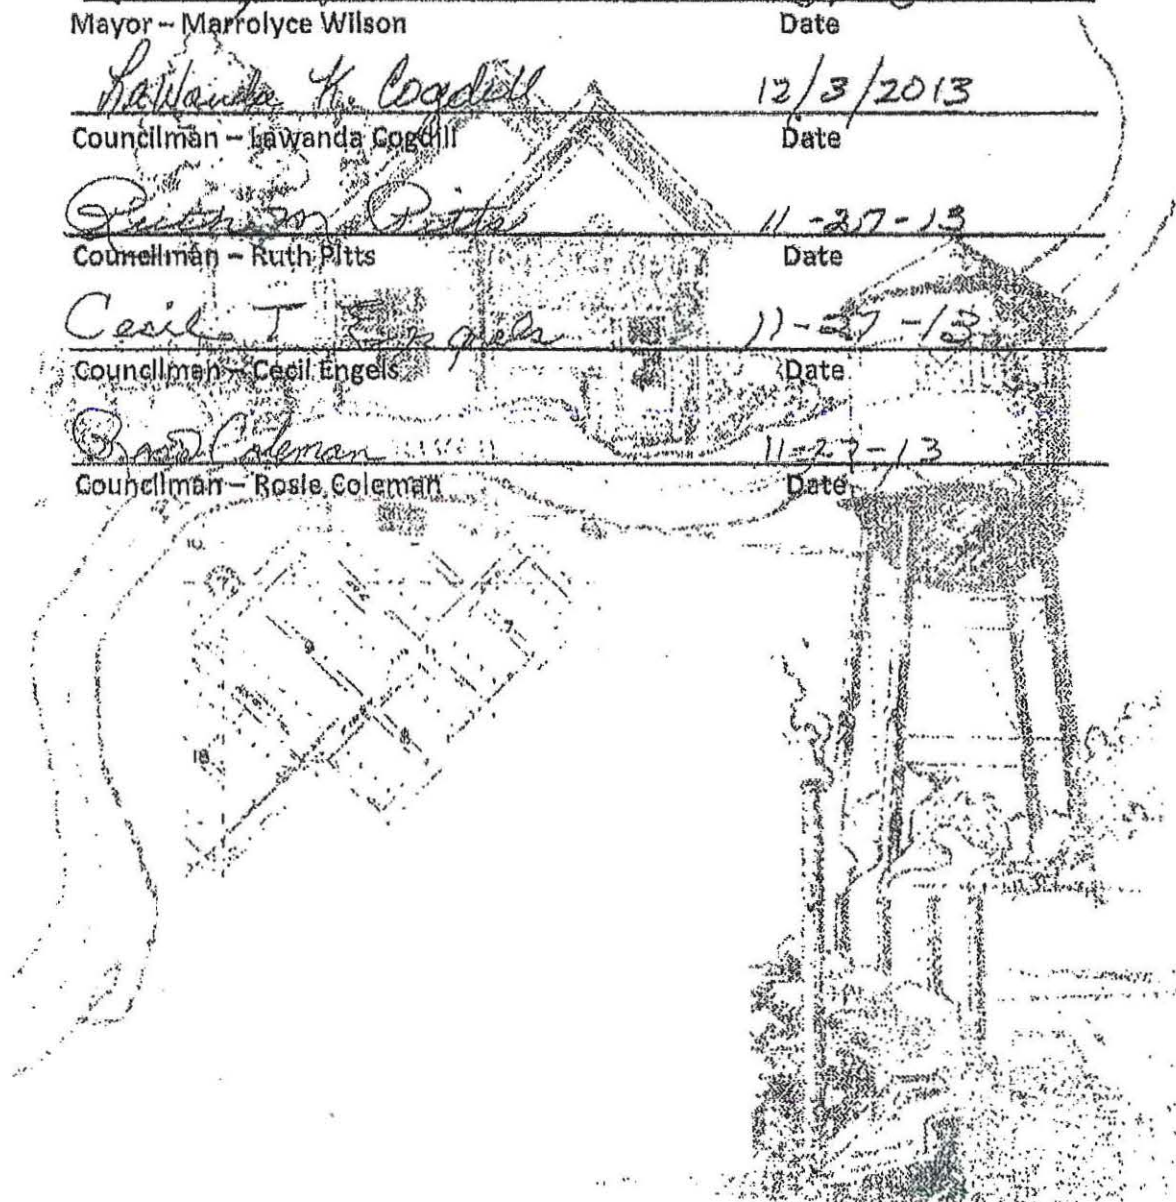 Mayor – Marrolyce Wilson Date
LaWanda K. Cogdill 12/3/2013
Councilman – Lawanda Cogdill Date
Ruth M Pitts 11-27-13
Councilman – Ruth Pitts Date
Cecil T Engels 11-27-13
Councilman – Cecil Engels Date
Coleman 11-27-13
Councilman – Rosie Coleman Date
10
7
9
7
8
18